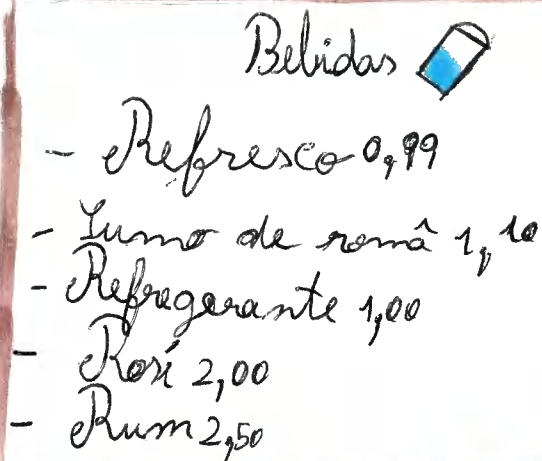 Bebidas
- Refresco 0,99
- Sumo de romã 1,10
- Refregerante 1,00
- Rosé 2,00
- Rum 2,50